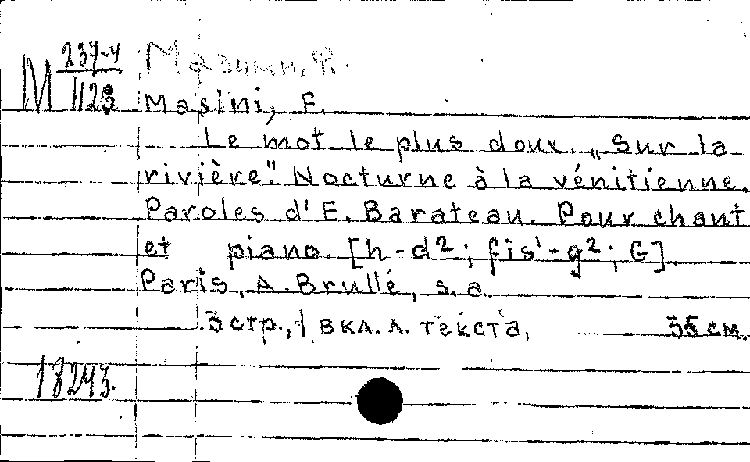 М 237-4/1128
Мазини, Ф.
Masini, F.
Le mot le plus doux. „Sur la
rivière". Nocturne à la vénitienne.
Paroles d'E. Barateau. Pour chant
et piano. [h-d²; fis¹-g²; G].
Paris, A. Brullé, s.a.
3 стр., 1 вкл. л. текста, 35 см.
18243.